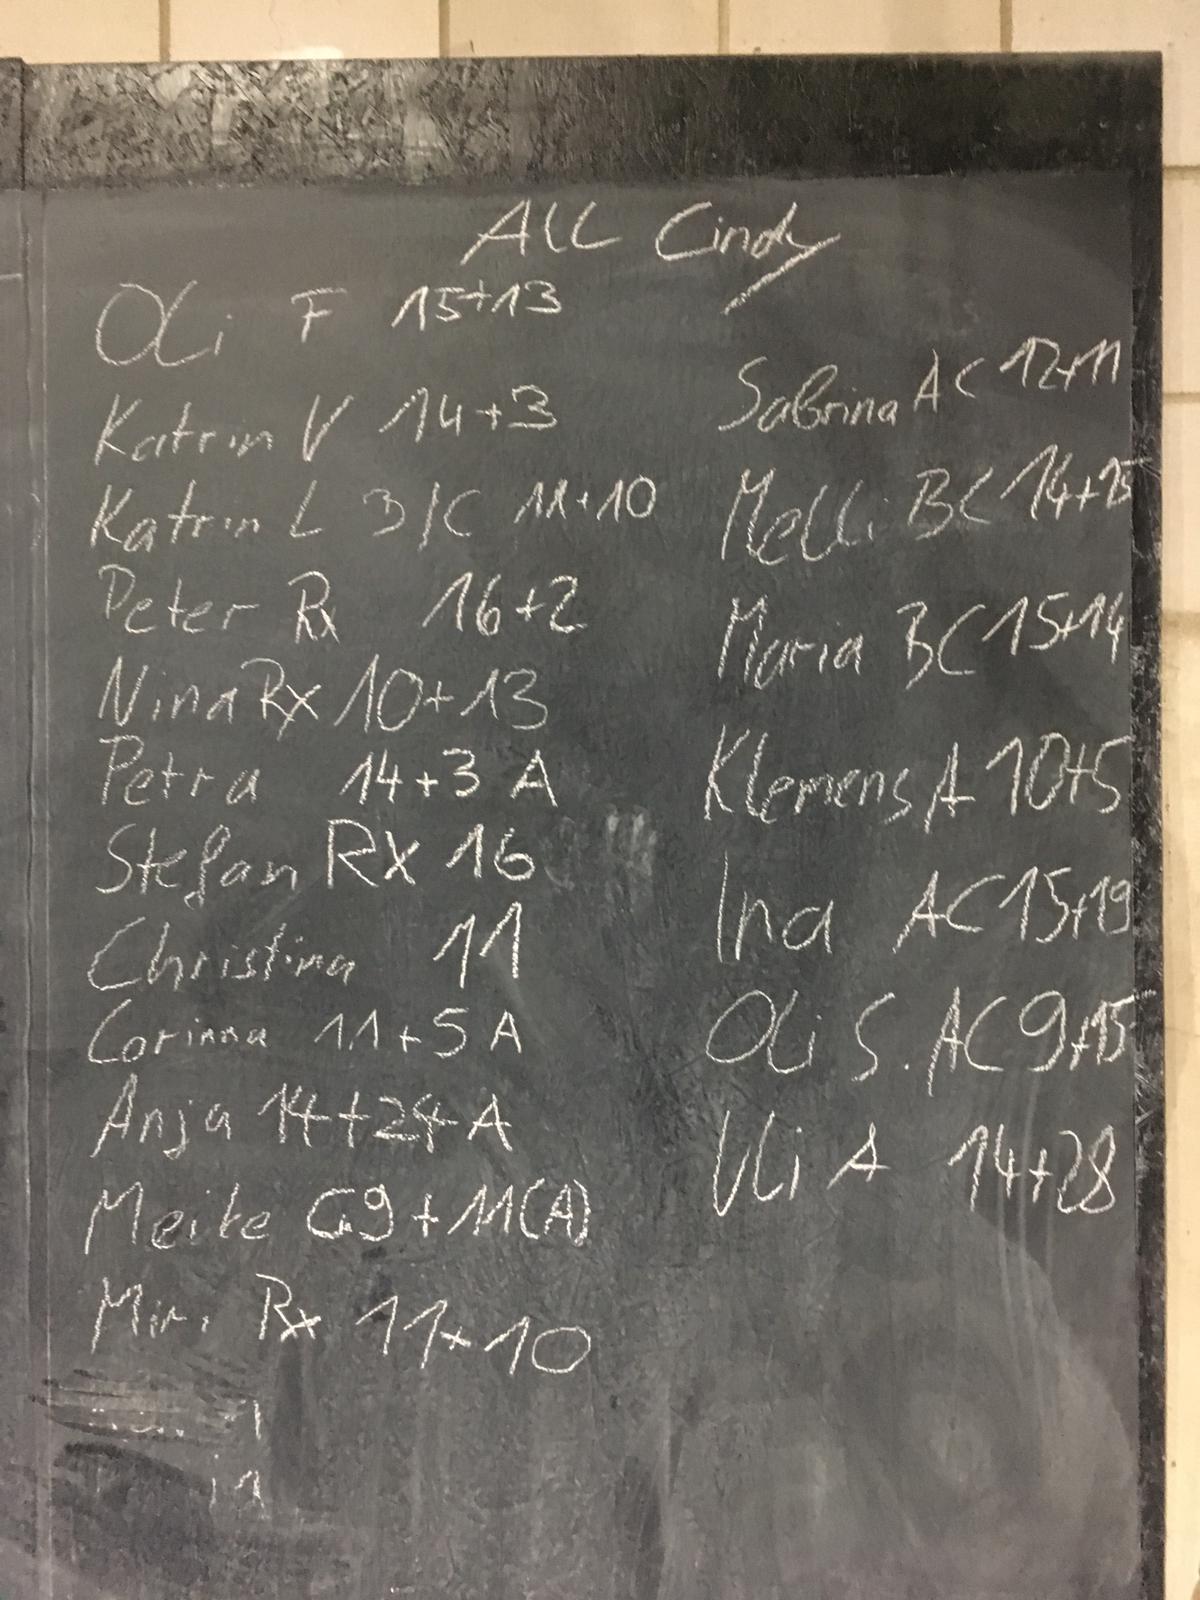 All Cindy
Oli F 15+13
Katrin V 14+3
Katrin L B/C 11+10
Peter Rx 16+2
Nina Rx 10+13
Petra 14+3 A
Stefan RX 16
Christina 11
Corinna 11+5 A
Anja 14+24 A
Meike G9+11(A)
Miri Rx 11+10
Sabrina AC 12+11
Melli BC 14+15
Maria BC 15+14
Klemens A 10+5
Ina AC 15+19
Oli S. AC 9+15
Uli A 14+28